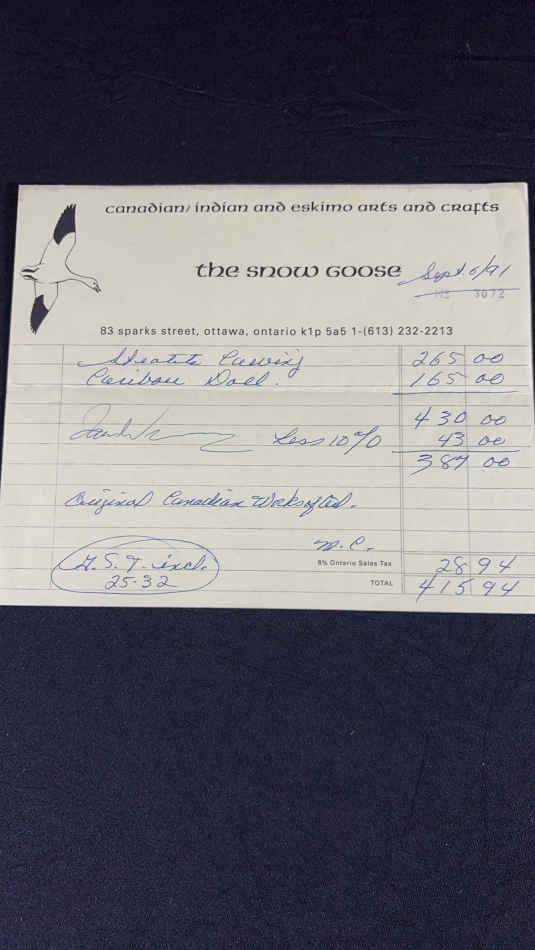 canadian/indian and eskimo arts and crafts
the snow goose
Sept. 6/91
Nº 3072
83 sparks street, ottawa, ontario k1p 5a5 1-(613) 232-2213
Steatite Carving 265 00
Caribou Doll. 165 00
430 00
Less 10% 43 00
387 00
Original Canadian Works of Art.
M.C.
G.S.T. incl. 25.32
8% Ontario Sales Tax 28 94
TOTAL 415 94